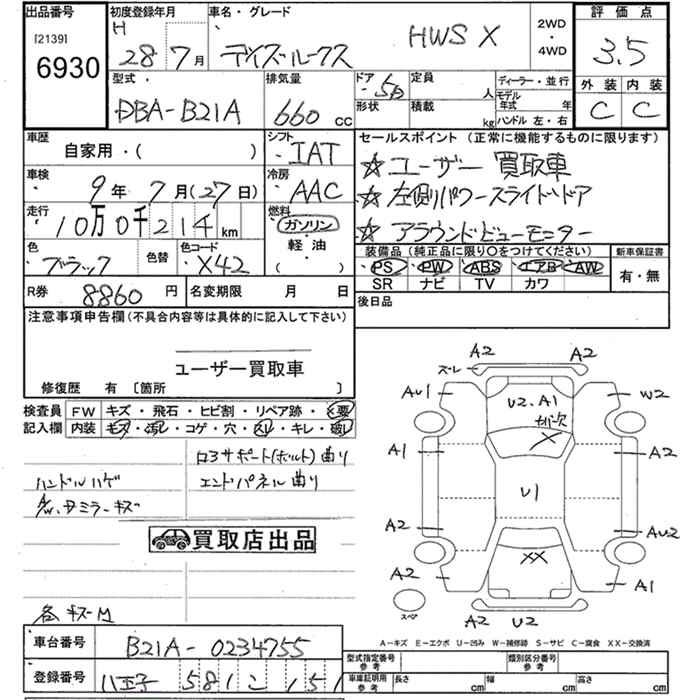 出品番号
[2139]
6930
初度登録年月
H 28年7月
車名・グレード
デイズルークス HWS X
2WD
・
4WD
評価点
3.5
外装 内装
C C
型式
DBA-B21A
排気量
660 cc
ドア 5D
形状
定員 人
積載 kg
ディーラー・並行
モデル年式 年
ハンドル 左・右
車歴
自家用・( )
車検
9年7月(27日)
走行
10万0千214km
色
ブラック
色替
色コード
X42
シフト
IAT
冷房
AAC
燃料
ガソリン
軽油
( )
セールスポイント (正常に機能するものに限ります)
☆ユーザー 買取車
☆左側パワースライドドア
☆アラウンドビューモニター
装備品(純正品に限り○をつけてください)
PS PW ABS エアB AW
SR ナビ TV カワ
新車保証書
有・無
R券 8860円
名変期限 月 日
後日品
注意事項申告欄(不具合内容等は具体的に記入して下さい)
ユーザー買取車
修復歴 有〔箇所 〕
検査員記入欄
FW キズ・飛石・ヒビ割・リペア跡・X要
内装 キズ・汚レ・コゲ・穴・スレ・キレ・破レ
ロアサポート(ボルト)曲り
ハンドルハゲ
エンドパネル曲り
A/W、ドミラーキズ
買取店出品
各キズM
車台番号 B21A-0234755
登録番号 八王子 581 こ 151
A2 A2
ズレ
AU1
U2.A1
W2
サビ欠
X
A1
A2
U1
A2
AU2
XX
A2
A1
スペア
A2 U2
A-キズ E-エクボ U-凹み W-補修跡 S-サビ C-腐食 XX-交換済
型式指定番号 参考
類別区分番号 参考
車庫証明用 参考
長さ cm
幅 cm
高さ cm